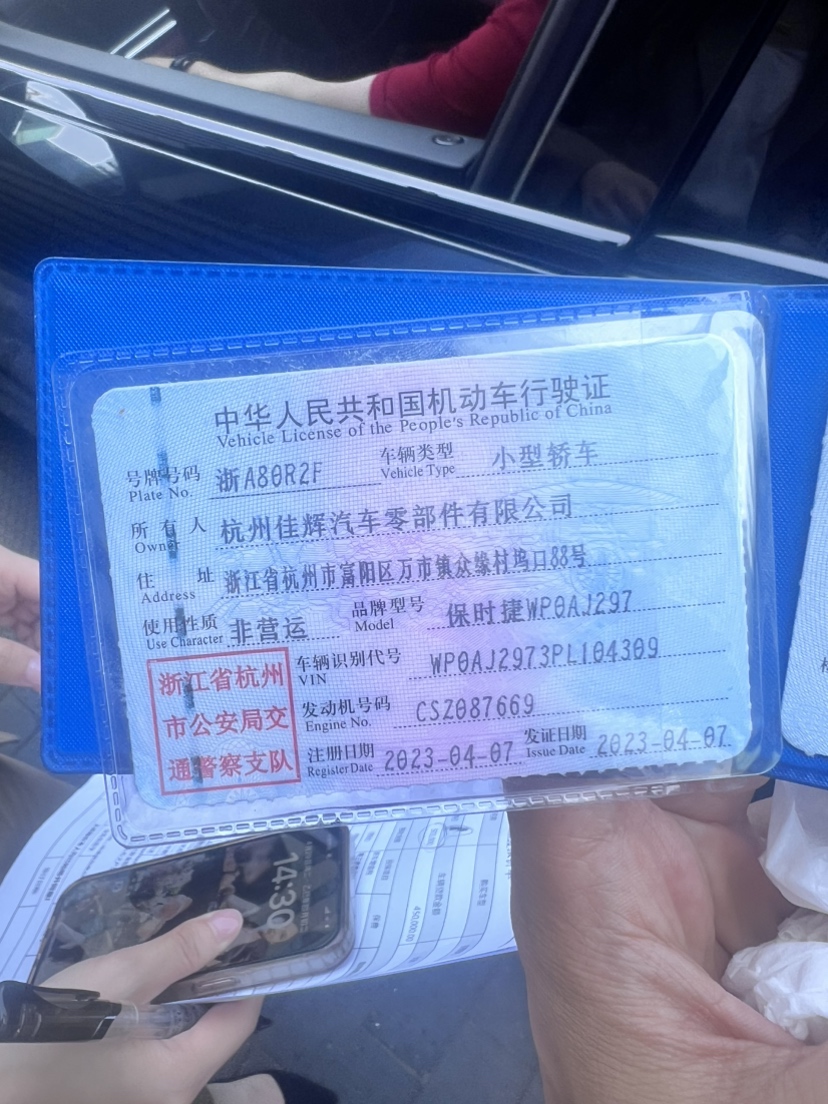 中华人民共和国机动车行驶证
Vehicle License of the People's Republic of China
号牌号码 浙A80R2F 车辆类型 小型轿车
Plate No. Vehicle Type
所有人 杭州佳辉汽车零部件有限公司
Owner
住址 浙江省杭州市富阳区万市镇众缘村坞口88号
Address
使用性质 非营运 品牌型号 保时捷WP0AJ297
Use Character Model
浙江省杭州
市公安局交
通警察支队
车辆识别代号 WP0AJ2973PL104309
VIN
发动机号码 CSZ087669
Engine No.
注册日期 2023-04-07 发证日期 2023-04-07
Register Date Issue Date
14:30
450,000.00